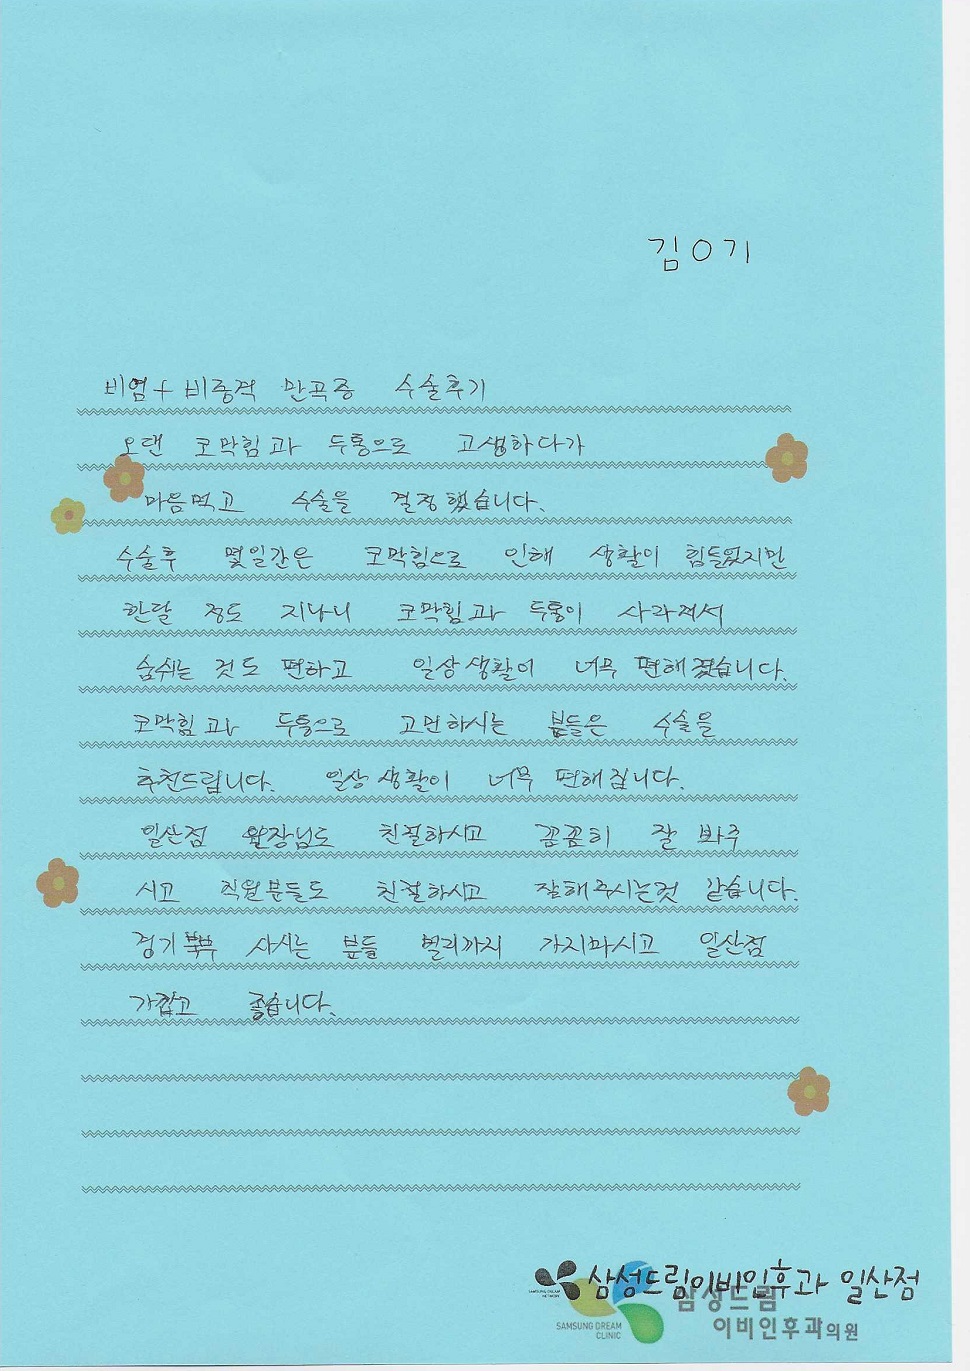 김O기
비염+비중격 만곡증 수술후기
오랜 코막힘과 두통으로 고생하다가
마음먹고 수술을 결정했습니다.
수술후 몇일간은 코막힘으로 인해 생활이 힘들었지만
한달 정도 지나니 코막힘과 두통이 사라져서
숨쉬는 것도 편하고 일상생활이 너무 편해졌습니다.
코막힘과 두통으로 고민하시는 분들은 수술을
추천드립니다. 일상생활이 너무 편해집니다.
일산점 원장님도 친절하시고 꼼꼼히 잘 봐주
시고 직원분들도 친절하시고 잘해주시는것 같습니다.
경기북부 사시는 분들 멀리까지 가지마시고 일산점
가깝고 좋습니다.
삼성드림이비인후과 일산점
SAMSUNG DREAM
NETWORK
삼성드림
이비인후과의원
SAMSUNG DREAM
CLINIC